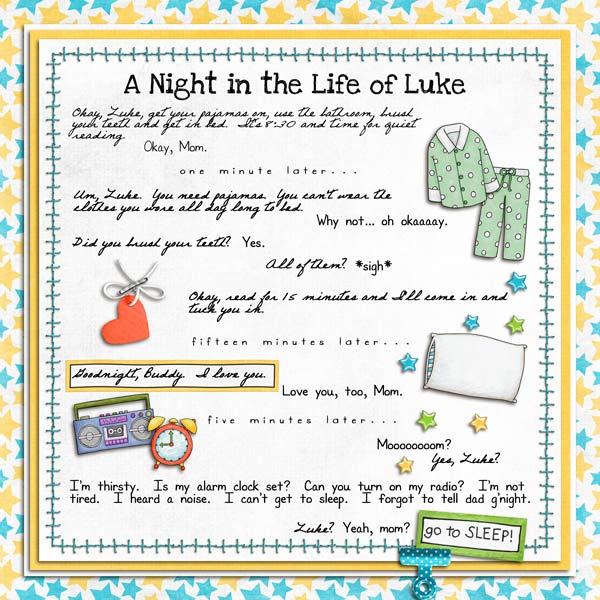 A Night in the Life of Luke
Okay, Luke, get your pajamas on, use the bathroom, brush
your teeth and get in bed. It's 8:30 and time for quiet
reading.
Okay, Mom.
one minute later...
Um, Luke. You need pajamas. You can't wear the
clothes you wore all day long to bed.
Why not... oh okaaaay.
Did you brush your teeth? Yes.
All of them? *sigh*
Okay, read for 15 minutes and I'll come in and
tuck you in.
fifteen minutes later...
Goodnight, Buddy. I love you.
Love you, too, Mom.
five minutes later...
Mooooooom?
Yes, Luke?
I'm thirsty. Is my alarm clock set? Can you turn on my radio? I'm not
tired. I heard a noise. I can't get to sleep. I forgot to tell dad g'night.
Luke? Yeah, mom?
go to SLEEP!